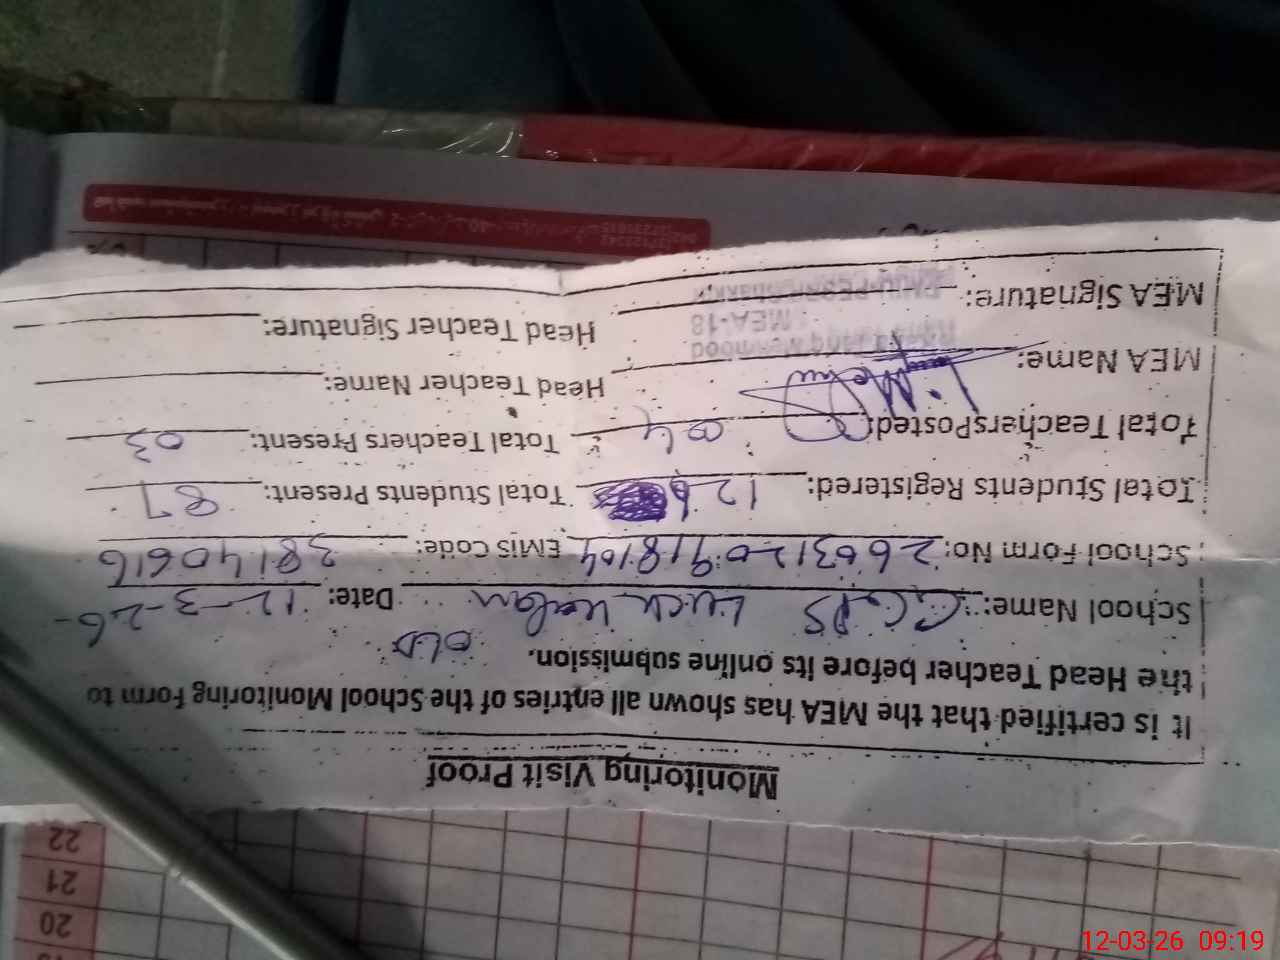 Monitoring Visit Proof
It is certified that the MEA has shown all entries of the School Monitoring Form to
the Head Teacher before its online submission.
OLD
School Name: GGPS Date: 12-3-26-
School Form No: EMIS Code: 38140616
Total Students Registered: 126 Total Students Present: 87
Total Teachers Posted: 04 Total Teachers Present: 03
MEA Name: Head Teacher Name:
Mehmood
MEA-18
MEA Signature: Head Teacher Signature:
22
21
20
12-03-26 09:19